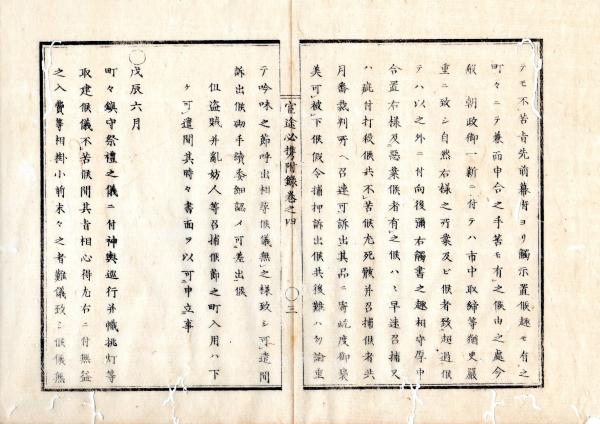 テモ不苦旨先前幕府ヨリ觸示置候趣モ有之
町々ニテ兼而申合之手苦モ有之候由之處今
般朝政御一新ニ付テハ市中取締等猶更嚴
重ニ致シ自然右樣之所業及ビ候者致超過候
テハ以之外ニ付向後彌右觸書之趣相守厚申
合置右樣及惡業候者有之候ハヽ早速召捕又
ハ疵付打殺候共不苦候尤死骸并召捕候者共
月番裁判所ヘ召連可訴出其品ニ寄
度御褒
美可被下候假令捕押訴出候共後難ハ勿論重
宦途必携附録巻之四
三
テ吟味之節呼出相尋候儀無之樣致シ可遣間
訴出候砌手續委細認メ可差出候
但盗賊并亂妨人等召捕候節之町入用ハ下
ケ可遣間其時々書面ヲ以可申立事
戊辰六月
町々鎮守祭禮之儀ニ付神輿巡行并幟挑灯等
取建候儀不苦候間其旨相心得尤右ニ付無益
之入費等相掛小前末々之者難儀致シ候儀無